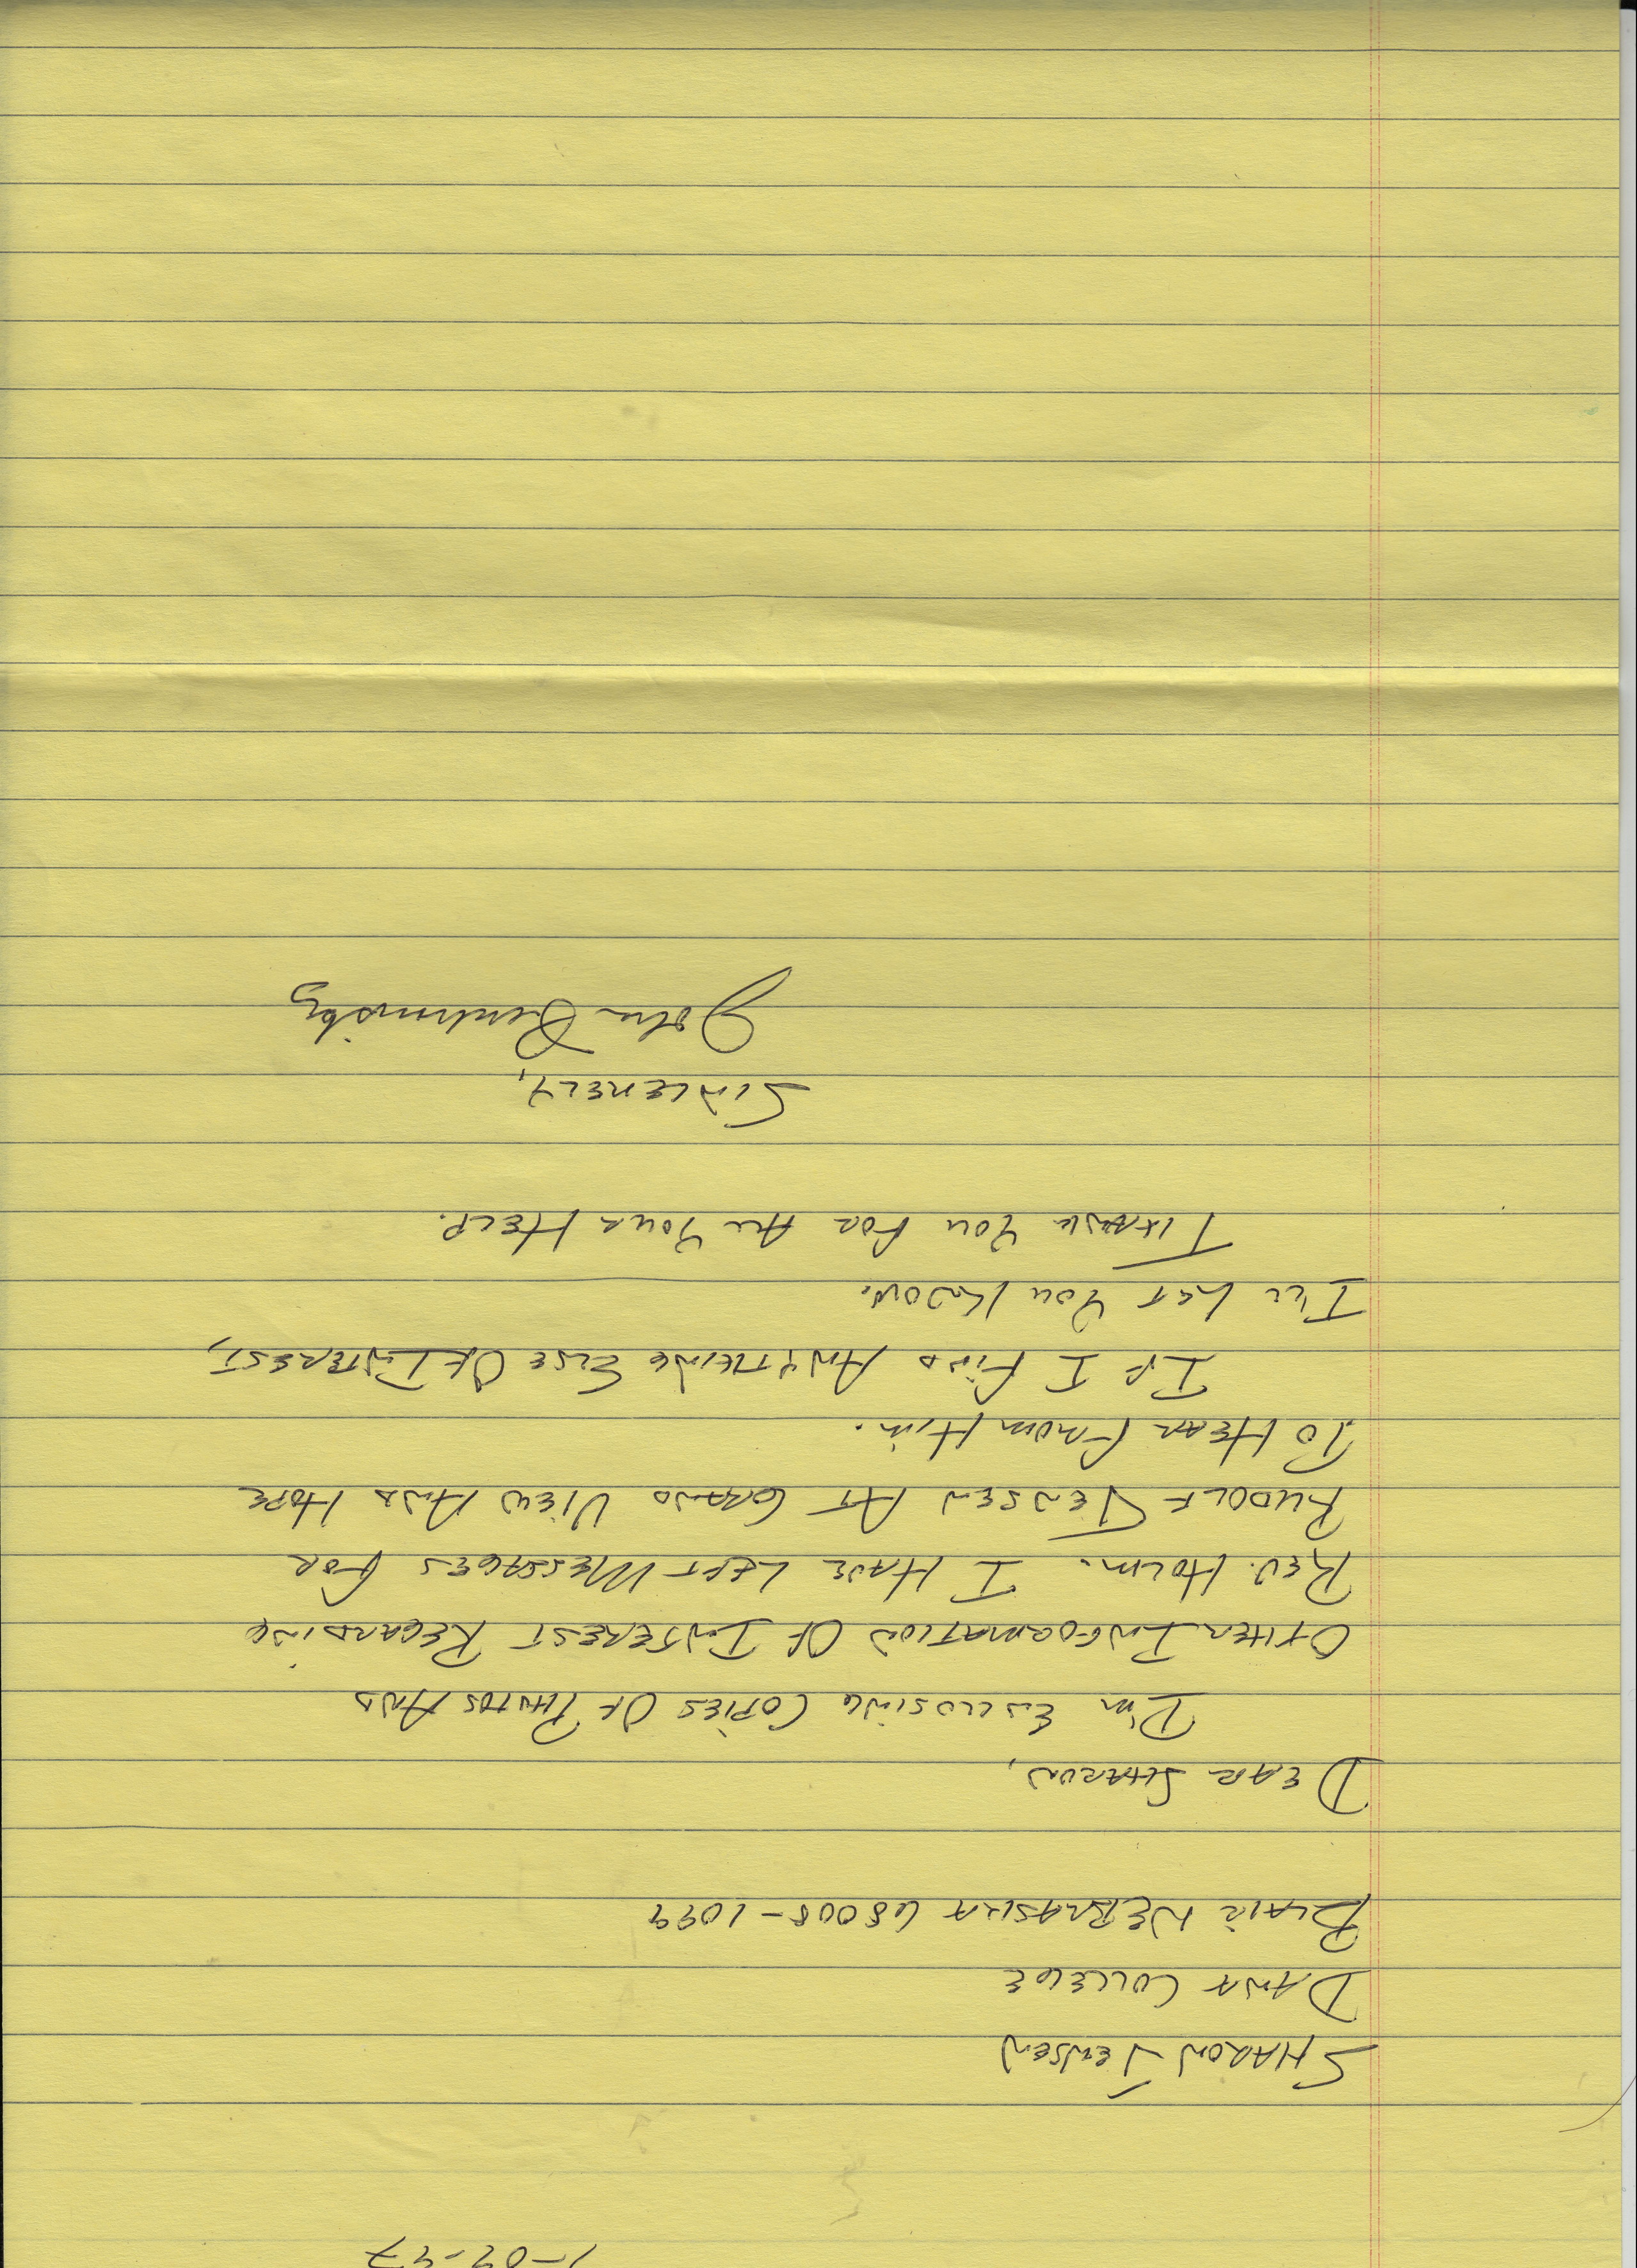 SHARON JENSEN
DANA COLLEGE
BLAIR NEBRASKA 68008-1099
DEAR SHARON,
I'M ENCLOSING COPIES OF PHOTOS AND
OTHER INFORMATION OF INTEREST REGARDING
REV. HOLM. I HAVE LEFT MESSAGES FOR
RUDOLF JENSEN AT GRAND VIEW AND HOPE
TO HEAR FROM HIM.
IF I FIND ANYTHING ELSE OF INTEREST,
I'LL LET YOU KNOW.
THANK YOU FOR ALL YOUR HELP.
SINCERELY,
John